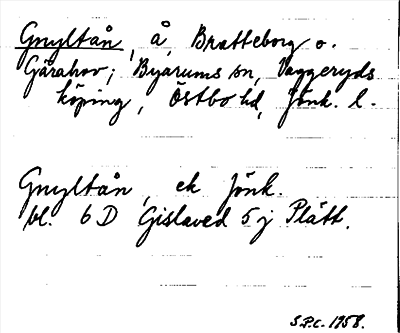 Gnyltån, å, Bratteborg o.
Gårahov; Byarums sn, Vaggeryds
köping, Östbo hd, Jönk. l.
Gnyltån, ek Jönk.
bl. 6 D Gislaved 5 j Plätt.
S.P.c. 1958.